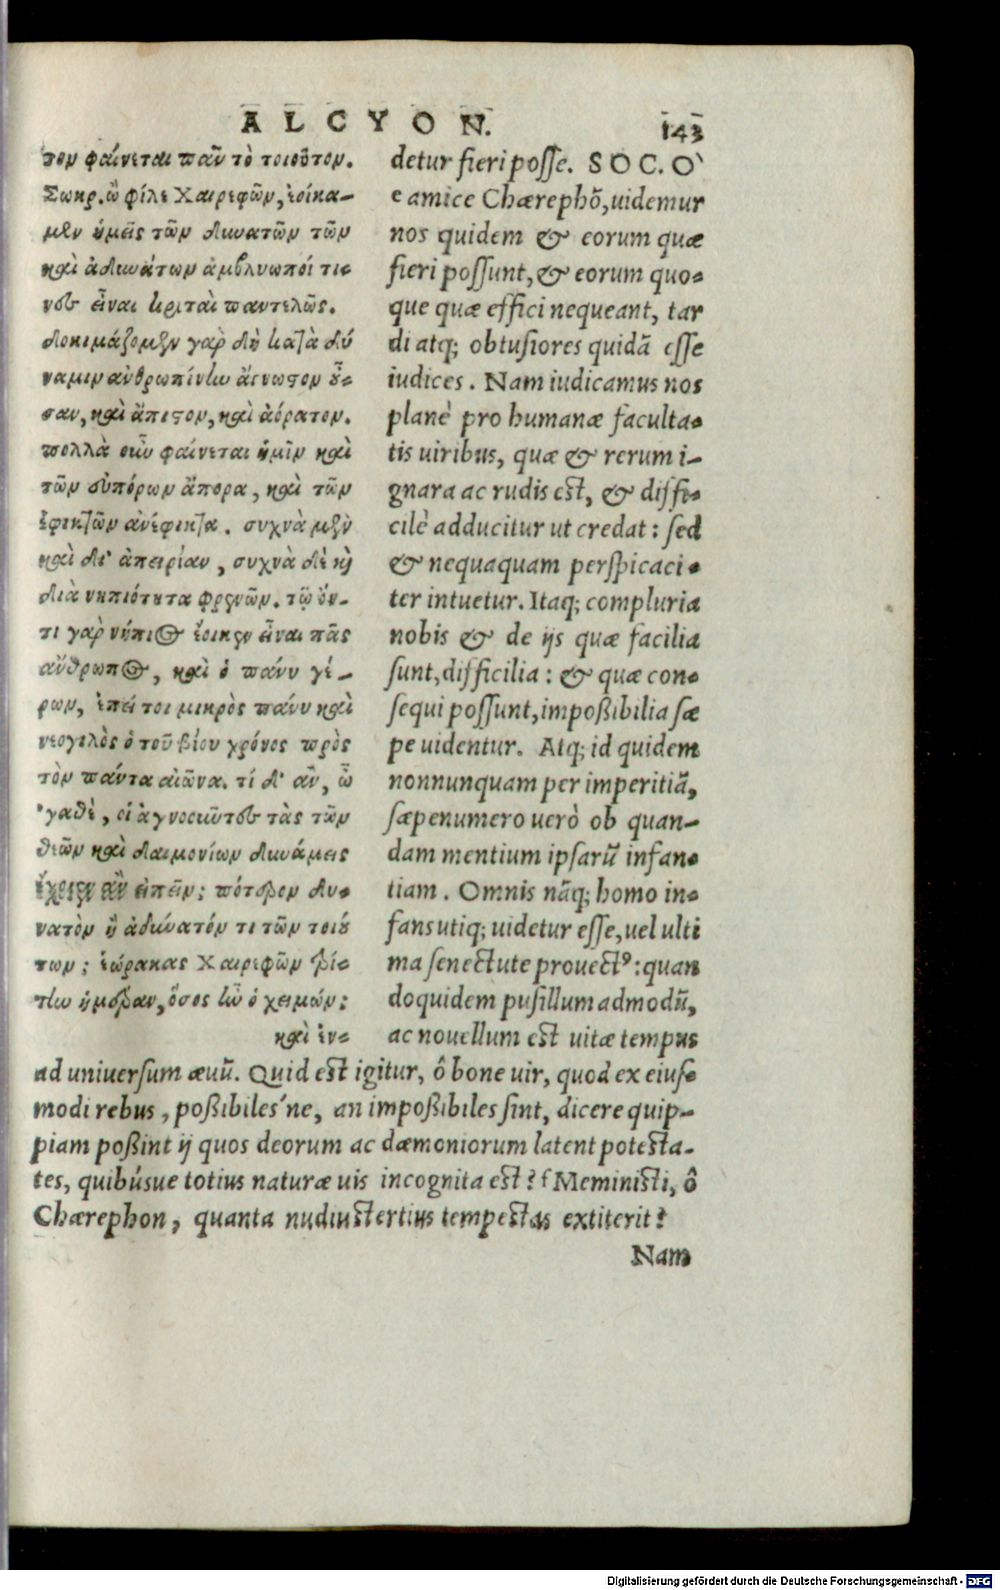 ALCYON. 143
τον φαίνεται πᾶν τὸ τοιοῦτον.
Σωκρ. ὦ φίλε Χαιρεφῶν, ἐοίκα-
μεν ἡμεῖς τῶν δυνατῶν τῶν
καὶ ἀδυνάτων ἀμβλυωποί τι-
νες εἶναι κριταὶ παντελῶς.
δοκιμάζομεν γὰρ δὴ κατὰ δύ
ναμιν ἀνθρωπίνην ἄγνωστον οὖ-
σαν, καὶ ἄπιστον, καὶ ἀόρατον.
πολλὰ οὖν φαίνεται ἡμῖν καὶ
τῶν εὐπόρων ἄπορα, καὶ τῶν
ἐφικτῶν ἀνέφικτα. συχνὰ μὲν
καὶ δι' ἀπειρίαν, συχνὰ δὲ καὶ
διὰ νηπιότητα φρενῶν. τῷ ὄν-
τι γὰρ νήπιος ἔοικεν εἶναι πᾶς
ἄνθρωπος, καὶ ὁ πάνυ γέ-
ρων, ἐπεί τοι μικρὸς πάνυ καὶ
νεογιλὸς ὁ τοῦ βίου χρόνος πρὸς
τὸν πάντα αἰῶνα. τί δ' ἂν, ὦ
'γαθὲ, οἱ ἀγνοοῦντες τὰς τῶν
θεῶν καὶ δαιμονίων δυνάμεις
ἔχοιεν ἂν εἰπεῖν; πότερον δυ-
νατὸν ἢ ἀδύνατόν τι τῶν τοιού
των; ἑώρακας Χαιρεφῶν τρί-
την ἡμέραν, ὅσος ἦν ὁ χειμών;
καὶ ἐν-
detur fieri posse. SOC. O`
e amice Chærephō, uidemur
nos quidem & eorum quæ
fieri possunt, & eorum quo-
que quæ effici nequeant, tar
di atq; obtusiores quidā esse
iudices. Nam iudicamus nos
planè pro humanæ faculta-
tis uiribus, quæ & rerum i-
gnara ac rudis est, & diffi-
cilè adducitur ut credat: sed
& nequaquam perspicaci-
ter intuetur. Itaq; compluria
nobis & de ijs quæ facilia
sunt, difficilia: & quæ con-
sequi possunt, impoßibilia sæ
pe uidentur. Atq; id quidem
nonnunquam per imperitiā,
sæpenumero uerò ob quan-
dam mentium ipsarū infan-
tiam. Omnis nāq; homo in-
fans utiq; uidetur esse, uel ulti
ma senectute prouectꝰ: quan
doquidem pusillum admodū,
ac nouellum est uitæ tempus
ad uniuersum æuū. Quid est igitur, ô bone uir, quod ex eius-
modi rebus, poßibiles'ne, an impoßibiles sint, dicere quip-
piam poßint ij quos deorum ac dæmoniorum latent potesta-
tes, quibúsue totius naturæ uis incognita est? Meministi, ô
Chærephon, quanta nudiustertius tempestas extiterit?
Nam
Digitalisierung gefördert durch die Deutsche Forschungsgemeinschaft - DFG